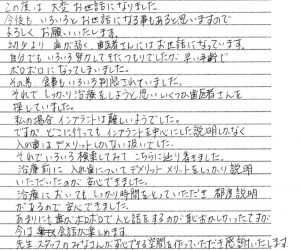 この度は 大変 お世話になりました
今後も いろいろと お世話になる事もあると思いますので
よろしく お願いいたします。
幼少より 歯が弱く、歯医者さんにはお世話になっています。
自分でも いろいろ努力してきたつもりでしたが 早い年齢で
ボロボロに なってしまいました。
その為 食事も いろいろ制限されていました。
それで しっかり治療をしようと思い いくつか歯医者さんを
探していました。
私の場合 インプラントは難しいようでした。
ですが どこに行っても インプラントを中心にした説明しかなく
入れ歯は デメリットしかない扱いでした。
それで いろいろ検索してみて こちらに辿り着きました。
治療前に 入れ歯について デメリット メリットをしっかり説明
いただいたのが 安心できました。
治療においても しっかり時間をとっていただき 都度説明
があるので 安心できました。
あまりにも歯が ボロボロで 人と話をするのが 恥ずかしかったですが
今は 会話が 楽しいです
先生 スタッフのみなさんが安心できる空間を作っていただき感謝いたします